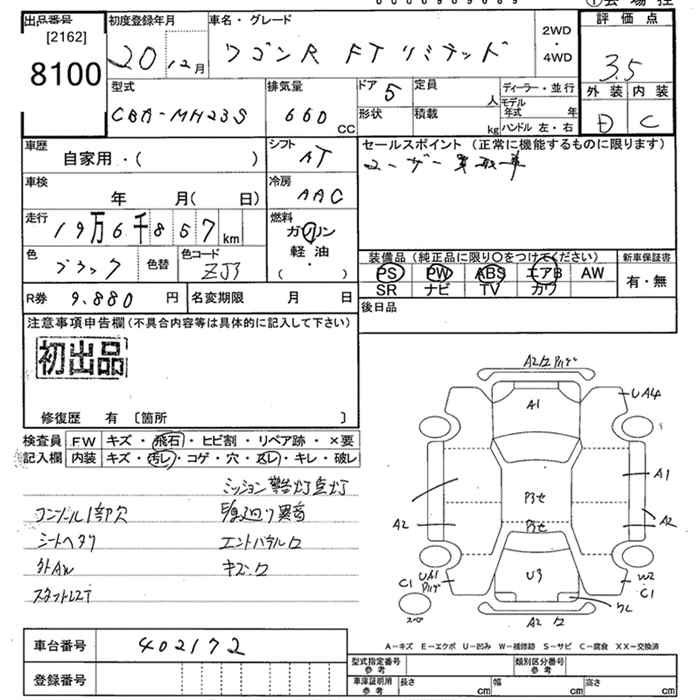 出品番号
[2162]
8100
初度登録年月
20 12月
車名・グレード
ワゴンR FTリミテッド
2WD
・
4WD
評価点
3.5
外装 内装
D C
型式
CBA-MH23S
排気量
660
CC
ドア 5
形状
定員
人
積載
kg
ディーラー・並行
モデル年式 年
ハンドル 左・右
車歴
自家用・( )
シフト
AT
セールスポイント (正常に機能するものに限ります)
ユーザー買取車
車検
年 月( 日)
冷房
AAC
走行
19万6千857km
燃料
ガソリン
軽油
( ・ )
色
ブラック
色替
色コード
ZJ3
装備品(純正品に限り○をつけてください)
PS PW ABS エアB AW
SR ナビ TV カワ
新車保証書
有・無
R券 9.880 円
名変期限 月 日
後日品
注意事項申告欄(不具合内容等は具体的に記入して下さい)
初出品
修復歴 有 〔箇所 〕
検査員記入欄
FW キズ・飛石・ヒビ割・リペア跡・×要
内装 キズ・汚レ・コゲ・穴・スレ・キレ・破レ
ミッション警告灯点灯
コンソール1部欠
シートヘタリ
外AW
エントパネル
A2
A1
UA4
A1
A2
A2
U3
UA1
C1
W2
C1
A2
A-キズ E-エクボ U-凹み W-補修跡 S-サビ C-腐食 XX-交換済
車台番号 402172
登録番号
型式指定番号
参考
類別区分番号
参考
車庫証明用
参考
長さ cm
幅 cm
高さ cm